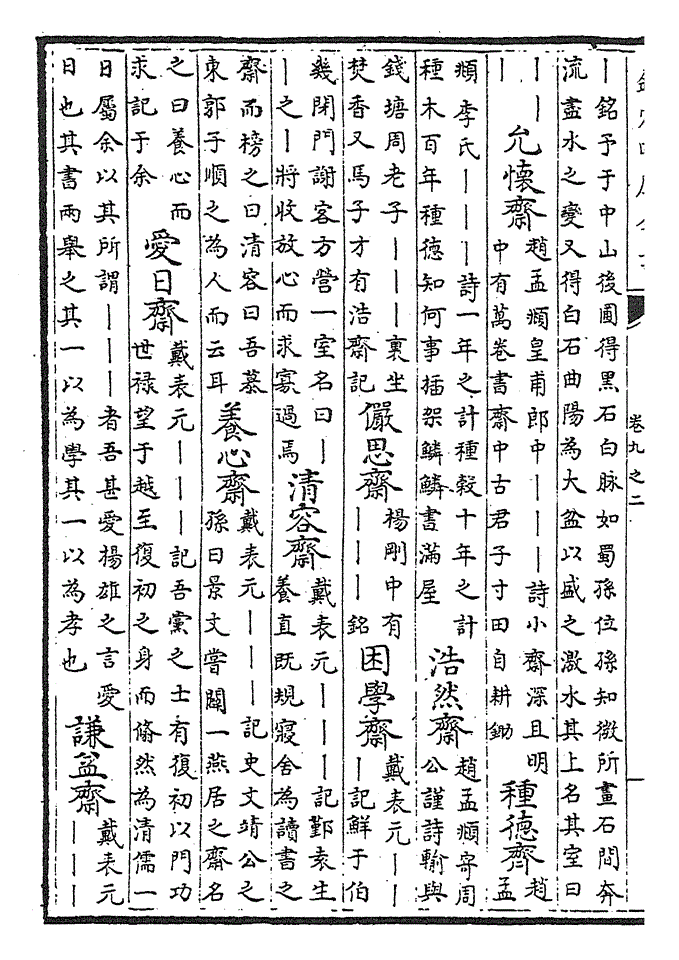 卷九之二
丨銘予于中山後圃得黑石白脉如蜀孫位孫知微所畫石間奔
流盡水之變又得白石曲陽為大盆以盛之激水其上名其室曰
丨丨
丨
允懷齋
趙孟頫皇甫郎中丨丨丨詩小齋深且明
中有萬卷書齋中古君子寸田自耕鋤
種德齊
趙
孟
頫李氏丨丨丨詩一年之計種穀十年之計
種木百年種德知何事插架鱗鱗書滿屋
浩然齋
趙孟頫寄周
公謹詩輸與
錢塘周老子丨丨丨裏坐
焚香又馬子才有浩齋記
儼思齋
楊剛中有
丨丨丨銘
困學齋
戴表元丨丨
丨記鮮于伯
幾閉門謝客方營一室名曰丨
丨之丨將收放心而求寡過焉
清容齋
戴表元丨丨丨記鄞袁生
養直既規寢舍為讀書之
齋而榜之曰清容曰吾慕
東郭子順之為人而云耳
養心齋
戴表元丨丨丨記史文靖公之
孫曰景文嘗闢一燕居之齋名
之曰養心而
求記于余
愛日齋
戴表元丨丨丨記吾黨之士有復初以門功
世禄望于越至復初之身而翛然為清儒一
日屬余以其所謂丨丨丨者吾甚愛揚雄之言愛
日也其書兩舉之其一以為學其一以為孝也
謙盆齋
戴表元
丨丨丨